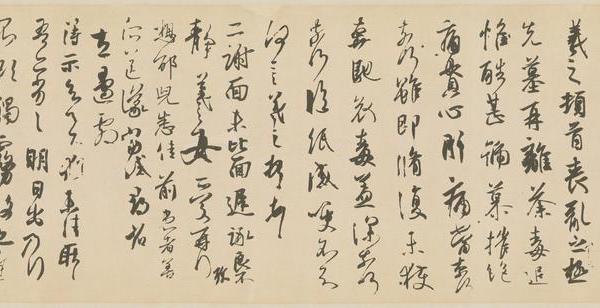 羲之頓首喪亂之極
先墓再離荼毒追
惟酷甚號慕摧絕
痛貫心肝痛當奈何
奈何雖即脩復未獲
奔馳哀毒益深奈何
奈何臨紙感哽不知
何言羲之頓首
二謝面未比面遲詠良不
靜羲之女愛再拜
想邵兒悉佳前患者善
所送議當試尋省
左邊劇
得示知足下猶未佳耿
吾亦劣劣明日出乃行
不欲觸霧故也